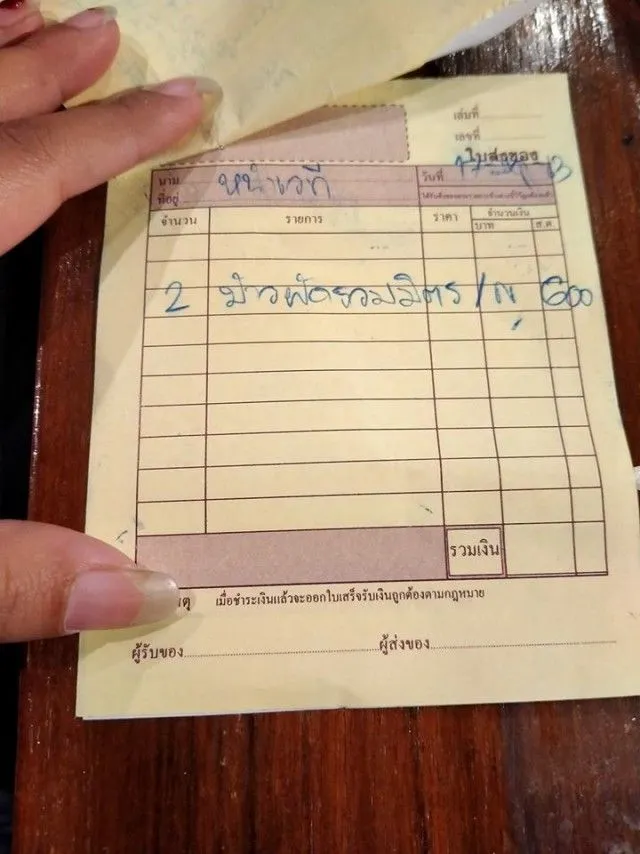 เล่มที่
เลขที่
ใบส่งของ
นาม หน้าเวที
ที่อยู่
วันที่
จำนวน รายการ ราคา จำนวนเงิน
บาท ส.ต.
2 ข้าวผัดรวมมิตร / กุ 600
รวมเงิน
เมื่อชำระเงินแล้วจะออกใบเสร็จรับเงินถูกต้องตามกฎหมาย
ผู้รับของ ผู้ส่งของ